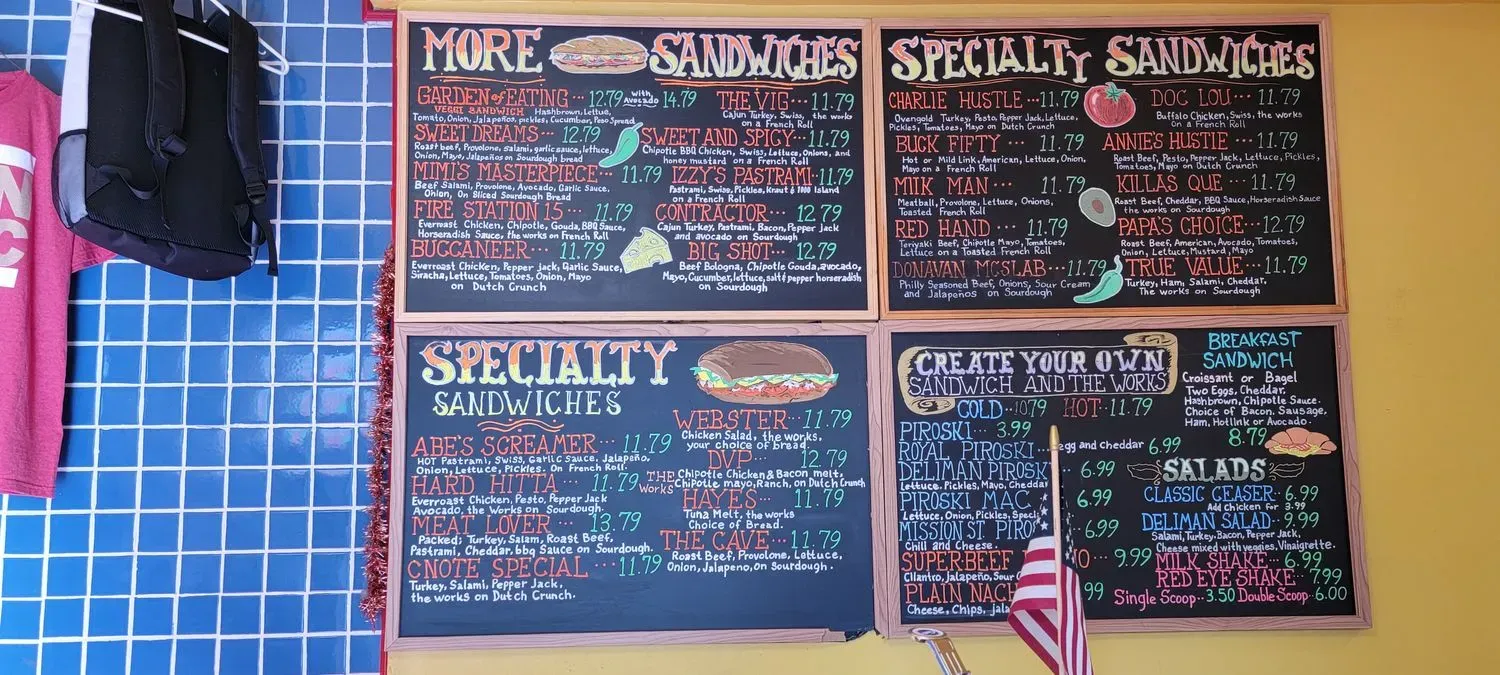 MORE SANDWICHES
GARDEN of EATING ··· 12.79 with Avocado 14.79
VEGGI SANDWICH Hashbrown, Lettuce,
Tomato, Onion, Jalapeños, pickles, Cucumber, Peso Spread
SWEET DREAMS ··· 12.79
Roast beef, Provolone, Salami, garlic sauce, lettuce,
Onion, Mayo, Jalapeños on Sourdough bread
MIMI'S MASTERPIECE ··· 11.79
Beef Salami, Provolone, Avocado, Garlic Sauce,
Onion, On Sliced Sourdough Bread
FIRE STATION 15 ··· 11.79
Everroast Chicken, Chipotle, Gouda, BBQ Sauce,
Horseradish Sauce, the works on French Roll
BUCCANEER ··· 11.79
Everroast Chicken, Pepper Jack, Garlic Sauce,
Siracha, Lettuce, Tomatoes, Onion, Mayo
on Dutch Crunch
THE VIG ··· 11.79
Cajun Turkey, Swiss, the works
on a French Roll
SWEET AND SPICY ·· 11.79
Chipotle BBQ Chicken, Swiss, Lettuce, Onions, and
honey mustard on a French Roll
IZZY'S PASTRAMI ·· 11.79
Pastrami, Swiss, Pickles, Kraut & 1000 Island
on a French Roll
CONTRACTOR ··· 12.79
Cajun Turkey, Pastrami, Bacon, Pepper jack
and avocado on Sourdough
BIG SHOT ··· 12.79
Beef Bologna, Chipotle Gouda, avocado,
Mayo, Cucumber, lettuce, salt & pepper horseradish
on Sourdough
SPECIALTY SANDWICHES
CHARLIE HUSTLE ··· 11.79
Ovengold Turkey, Pesto, Pepper Jack, Lettuce,
Pickles, Tomatoes, Mayo on Dutch Crunch
BUCK FIFTY ··· 11.79
Hot or Mild Link, American, Lettuce, Onion,
Mayo on a French Roll
MILK MAN ··· 11.79
Meatball, Provolone, Lettuce, Onions,
Toasted French Roll
RED HAND ··· 11.79
Teriyaki Beef, Chipotle Mayo, Tomatoes,
Lettuce on a Toasted French Roll
DONAVAN MCSLAB ··· 11.79
Philly Seasoned Beef, Onions, Sour Cream
and Jalapeños on Sourdough
DOC LOU ··· 11.79
Buffalo Chicken, Swiss, the works
on a French Roll
ANNIE'S HUSTLE ··· 11.79
Roast Beef, Pesto, Pepper Jack, Lettuce, Pickles,
Tomatoes, Mayo on Dutch Crunch
KILLAS QUE ··· 11.79
Roast Beef, Cheddar, BBQ Sauce, Horseradish Sauce
the works on Sourdough
PAPA'S CHOICE ··· 12.79
Roast Beef, American, Avocado, Tomatoes,
Onion, Lettuce, Mustard, Mayo
TRUE VALUE ··· 11.79
Turkey, Ham, Salami, Cheddar,
The works on Sourdough
SPECIALTY
SANDWICHES
ABE'S SCREAMER ··· 11.79
HOT Pastrami, Swiss, Garlic Sauce, Jalapeño,
Onion, Lettuce, Pickles. On French Roll.
HARD HITTA ··· 11.79
Everroast Chicken, Pesto, Pepper Jack
Avocado, the Works on Sourdough.
MEAT LOVER ··· 13.79
Packed; Turkey, Salam, Roast Beef,
Pastrami, Cheddar, bbq Sauce on Sourdough.
CNOTE SPECIAL ··· 11.79
Turkey, Salami, Pepper Jack,
the works on Dutch Crunch.
WEBSTER ··· 11.79
Chicken Salad, the works,
your choice of bread.
DVP ··· 12.79
THE Works Chipotle Chicken & Bacon melt,
Chipotle mayo, Ranch, on Dutch Crunch
HAYES ··· 11.79
Tuna Melt, the works
Choice of Bread.
THE CAVE ··· 11.79
Roast Beef, Provolone, Lettuce,
Onion, Jalapeno, on Sourdough.
CREATE YOUR OWN
SANDWICH AND THE WORKS
COLD ·· 10.79 HOT ·· 11.79
PIROSKI ··· 3.99
ROYAL PIROSKI ·· egg and cheddar 6.99
DELIMAN PIROSK 6.99
Lettuce, Pickles, Mayo, Chedda
PIROSKI MAC 6.99
Lettuce, Onion, Pickles, Speci
MISSION ST PIRO 6.99
Chili and Cheese.
SUPER·BEEF O ·· 9.99
Cilantro, Jalapeño, Sour
PLAIN NACH 99
Cheese, Chips, jala
BREAKFAST
SANDWICH
Croissant or Bagel
Two Eggs, Cheddar,
Hashbrown, Chipotle Sauce.
Choice of Bacon, Sausage,
Ham, Hotlink or Avocado.
8.79
SALADS
CLASSIC CEASER ·· 6.99
Add chicken for 3.99
DELIMAN SALAD ·· 9.99
Salami, Turkey, Bacon, Pepper Jack,
Cheese mixed with veggies, Vinaigrette.
MILK SHAKE ·· 6.99
RED EYE SHAKE ·· 7.99
Single Scoop ·· 3.50 Double Scoop ·· 6.00